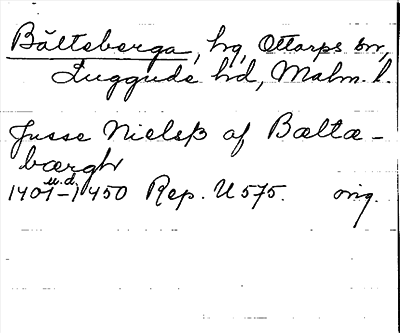 Bältsberga, hg, Ottarps sn,
Luggude hd, Malm. l.
Jusse Nielsß af Bælta-
bærgh
1401 u.d.-1450 Rep. U 575. orig.